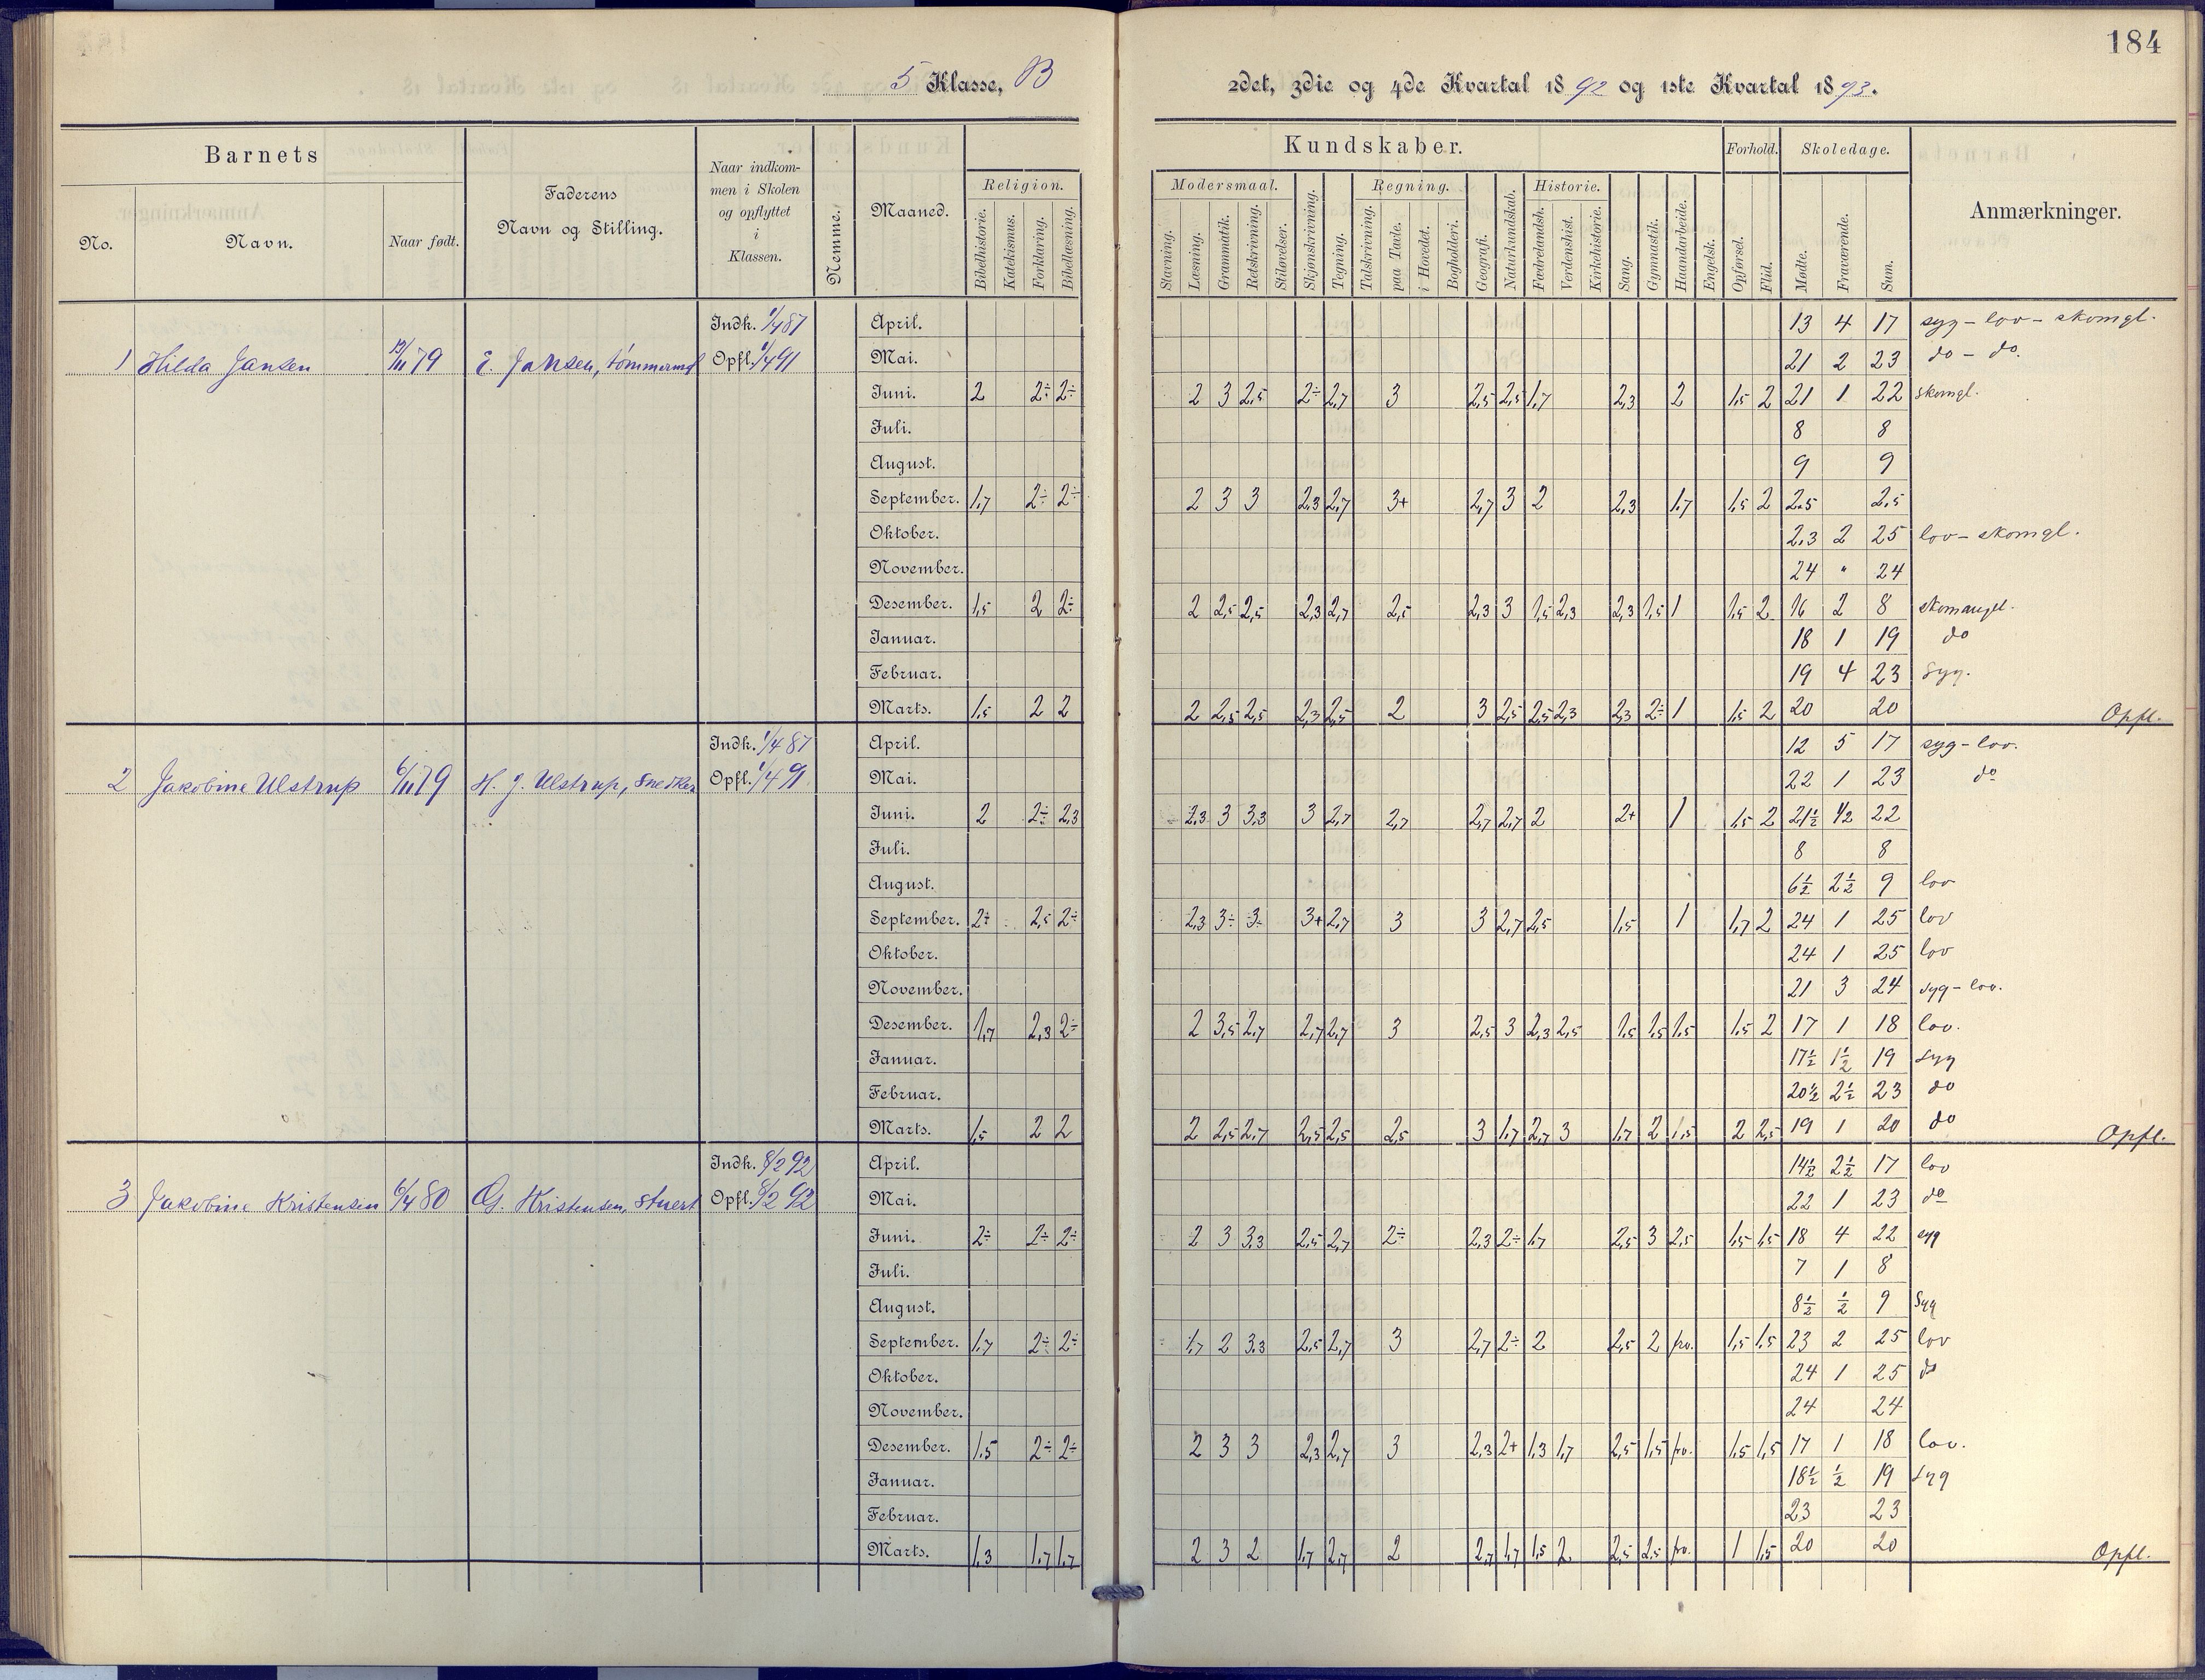 184
5 Klasse, B 2det, 3die og 4de Kvartal 1892 og 1ste Kvartal 1893.
Barnets
No. Navn. Naar født.
Faderens
Navn og Stilling.
Naar indkom-
men i Skolen
og opflyttet
i
Klassen.
Nemme.
Maaned.
Religion.
Bibelhistorie. Katekismus. Forklaring. Bibellæsning.
Kundskaber.
Modersmaal.
Stavning. Læsning. Grammatik. Retskrivning. Stiløvelser.
Skjønskrivning. Tegning.
Regning.
Talskrivning. paa Tavle. i Hovedet. Bogholderi.
Geografi. Naturkundskab.
Historie.
Fædrelandsh. Verdenshist. Kirkehistorie.
Sang. Gymnastik. Haandarbeide. Engelsk.
Forhold.
Opførsel. Flid.
Skoledage.
Mødte. Fraværende. Sum.
Anmærkninger.
Indk. 1/4 87 April. 13 4 17 syg - lov - skomgl.
1 Hilda Jansen 79 E. Jansen, tømmermd Opfl. 1/4 91 Mai. 21 2 23 do - do.
Juni. 2 2÷ 2÷ 2 3 2,5 2÷ 2,7 3 2,5 2,5 1,7 2,3 2 1,5 2 21 1 22 skomgl.
Juli. 8 8
August. 9 9
September. 1,7 2÷ 2÷ 2 3 3 2,3 2,7 3+ 2,7 3 2 2,3 1,7 1,5 2 25 25
Oktober. 23 2 25 lov - skomgl.
November. 24 " 24
Desember. 1,5 2 2÷ 2 2,5 2,5 2,3 2,7 2,5 2,3 3 1,5 2,3 2,3 1,5 1 1,5 2 16 2 8 skomangel.
Januar. 18 1 19 do
Februar. 19 4 23 Syg.
Marts. 1,5 2 2 2 2,5 2,5 2,3 2,5 2 3 2,5 2,5 2,3 2,3 2÷ 1 1,5 2 20 20 Opfl.
Indk. 1/4 87 April. 12 5 17 syg - lov.
2 Jakobine Ulstrup 6/11 79 H. J. Ulstrup, Snedker Opfl. 1/4 91 Mai. 22 1 23 do
Juni. 2 2÷ 2,3 2,3 3 3,3 3 2,7 2,7 2,7 2,7 2 2+ 1 1,5 2 21½ ½ 22
Juli. 8 8
August. 6½ 2½ 9 lov
September. 2÷ 2,5 2÷ 2,3 3÷ 3÷ 3+ 2,7 3 3 2,7 2,5 1,5 1 1,7 2 24 1 25 lov
Oktober. 24 1 25 lov
November. 21 3 24 syg - lov.
Desember. 1,7 2,3 2÷ 2 3,5 2,7 2,7 2,7 3 2,5 3 2,3 2,5 1,5 1,5 1,5 1,5 2 17 1 18 lov.
Januar. 17½ 1½ 19 Syg
Februar. 20½ 2½ 23 do
Marts. 1,5 2 2 2 2,5 2,7 2,5 2,5 2,5 3 1,7 2,7 3 1,7 2 1,5 2 2,5 19 1 20 do Opfl.
Indk. 8/2 92 April. 14½ 2½ 17 lov
3 Jakobine Kristensen 6/4 80 G. Kristensen, Stuert Opfl. 8/2 92 Mai. 22 1 23 do
Juni. 2÷ 2÷ 2÷ 2 3 3,3 2,5 2,7 2÷ 2,3 2÷ 1,7 2,5 3 2,5 1,5 1,5 18 4 22 syg
Juli. 7 1 8
August. 8½ ½ 9 Syg
September. 1,7 2÷ 2÷ 1,7 2 3,3 2,5 2,7 3 2,7 2÷ 2 2,5 2 fr. 1,5 1,5 23 2 25 lov
Oktober. 24 1 25 do
November. 24 24
Desember. 1,5 2÷ 2÷ 2 3 3 2,3 2,7 3 2,3 2+ 1,3 1,7 2,5 1,5 fr. 1,5 1,5 17 1 18 lov.
Januar. 18½ ½ 19 Syg
Februar. 23 23
Marts. 1,3 1,7 1,7 2 3 2 1,7 2,7 2 2,7 1,7 1,5 2 2,5 2,5 fr. 1 1,5 20 20 Opfl.